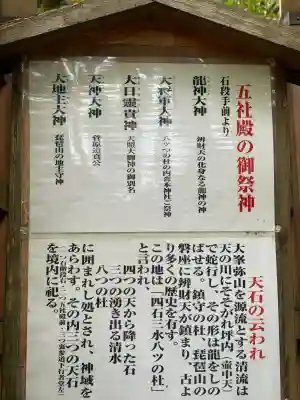 五社殿の御祭神
石段手前より、
龍神大神
辨財天の化身なる龍神の神
大将軍大神
八ツの杜の内嘉本神社に祭神
大日靈貴神
天照大御神の御別名
天神大神
菅原道真公
大地主大神
琵琶山の地主守神
天石の云われ
大峯弥山を源流とする清流は
天の川にてそがれ坪内(壷中天)
で蛇行し、その形は龍をしの
ばせる。鎮守の杜、琵琶山の
磐座に辨財天が鎮まり、古よ
り多くの歴史を有す。
この地は「四石三水八ツの杜」
と言われ
四つの天から降った石
三つの湧き出る清水
八つの杜
に囲まれし処とされ、神域を
あらわす。その内三つの天石
を境内に祀る。